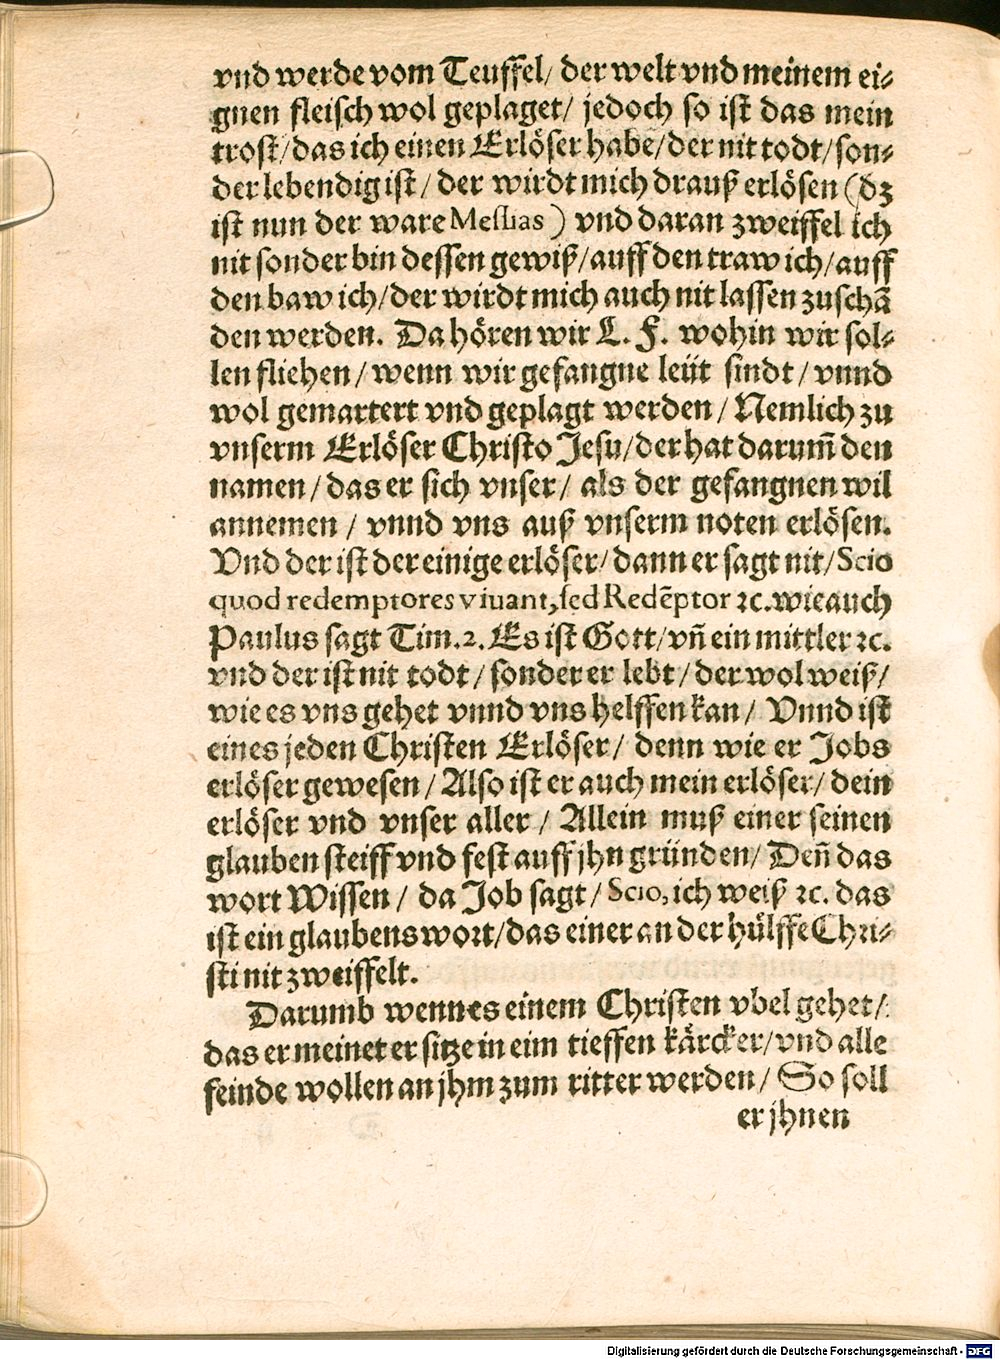 vnd werde vom Teuffel/ der welt vnd meinem ei⸗
gnen fleisch wol geplaget/ jedoch so ist das mein
trost/das ich einen Erlöser habe/der nit todt/son⸗
der lebendig ist/ der wirdt mich drauß erlösen (dz
ist nun der ware Messias) vnd daran zweiffel ich
nit sonder bin dessen gewiß/auff den traw ich/auff
den baw ich/der wirdt mich auch nit lassen zuschā
den werden. Da hören wir L. F. wohin wir sol⸗
len fliehen/ wenn wir gefangne leüt sindt/ vnnd
wol gemartert vnd geplagt werden/ Nemlich zu
vnserm Erlöser Christo Jesu/der hat darum̄ den
namen/ das er sich vnser/ als der gefangnen wil
annemen/ vnnd vns auß vnserm noten erlösen.
Vnd der ist der einige erlöser/ dann er sagt nit/ Scio
quod redemptores viuant, sed Redēptor ꝛc. wie auch
Paulus sagt Tim. 2. Es ist Gott/ vn̄ ein mittler ꝛc.
vnd der ist nit todt/ sonder er lebt/ der wol weiß/
wie es vns gehet vnnd vns helffen kan/ Vnnd ist
eines jeden Christen Erlöser/ denn wie er Jobs
erlöser gewesen/ Also ist er auch mein erlöser/ dein
erlöser vnd vnser aller/ Allein muß einer seinen
glauben steiff vnd fest auff jhn gründen/ Den̄ das
wort Wissen/ da Job sagt/ Scio, ich weiß ꝛc. das
ist ein glaubens wort/das einer an der hülffe Chri⸗
sti nit zweiffelt.
Darumb wenn es einem Christen vbel gehet/
das er meinet er sitze in eim tieffen kärcker/ vnd alle
feinde wollen an jhm zum ritter werden/ So soll
er jhnen
Digitalisierung gefördert durch die Deutsche Forschungsgemeinschaft - DFG